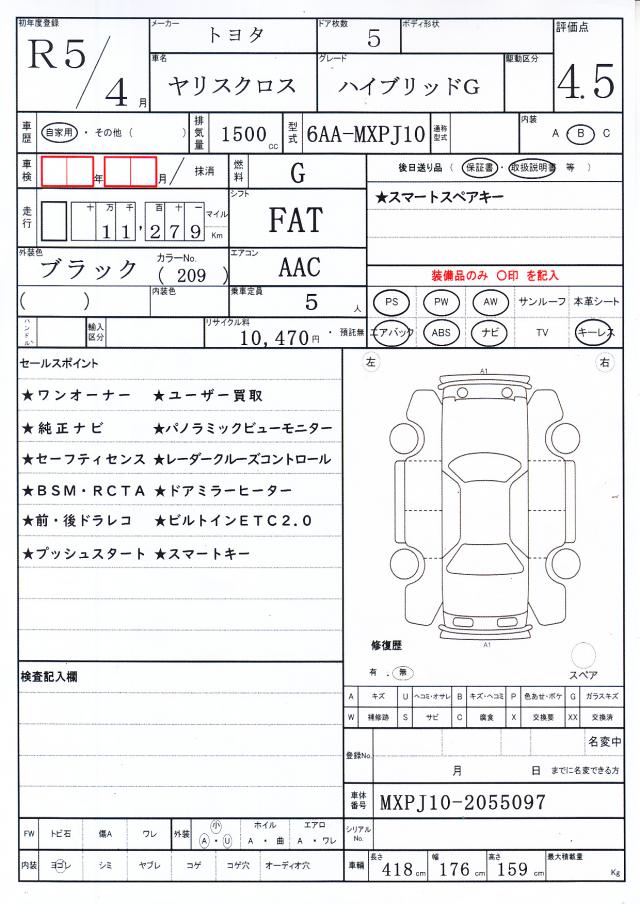 初年度登録 メーカー トヨタ ドア枚数 5 ボディ形状 評価点
R5/4月
車名 ヤリスクロス グレード ハイブリッドG 駆動区分 4.5
車歴 自家用 ・ その他 ( ) 排気量 1500cc 型式 6AA-MXPJ10 通称型式 内装 A ・ B C
車検 年 月 / 抹消 燃料 G 後日送り品 ( 保証書 ・ 取扱説明書 等 )
走行 十 万 千 百 十 一 11,279 マイル Km シフト FAT ★スマートスペアキー
外装色 ブラック カラーNo. ( 209 ) エアコン AAC 装備品のみ 〇印 を記入
( ) 内装色 乗車定員 5 人 PS PW AW サンルーフ 本革シート
ハンドル 輸入区分 リサイクル料 10,470円 ・ 預託無 エアバック ABS ナビ TV キーレス
セールスポイント 左 右
A1
★ワンオーナー ★ユーザー買取
★純正ナビ ★パノラミックビューモニター
★セーフティセンス ★レーダークルーズコントロール
★BSM・RCTA ★ドアミラーヒーター
★前・後ドラレコ ★ビルトインETC2.0
★プッシュスタート ★スマートキー
A1
修復歴
有 . 無 スペア
検査記入欄
A キズ U ヘコミ・オサレ B キズ・ヘコミ P 色あせ・ボケ G ガラスキズ
W 補修跡 S サビ C 腐食 X 交換要 XX 交換済
登録No. 名変中
月 日 までに名変できる方
車体番号 MXPJ10-2055097
FW トビ石 傷A ワレ 外装 小 A ・ U ホイル A ・ 曲 エアロ A ・ ワレ シリアルNo.
内装 ヨゴレ シミ ヤブレ コゲ コゲ穴 オーディオ穴 車輌 長さ 418cm 幅 176cm 高さ 159cm 最大積載量 Kg